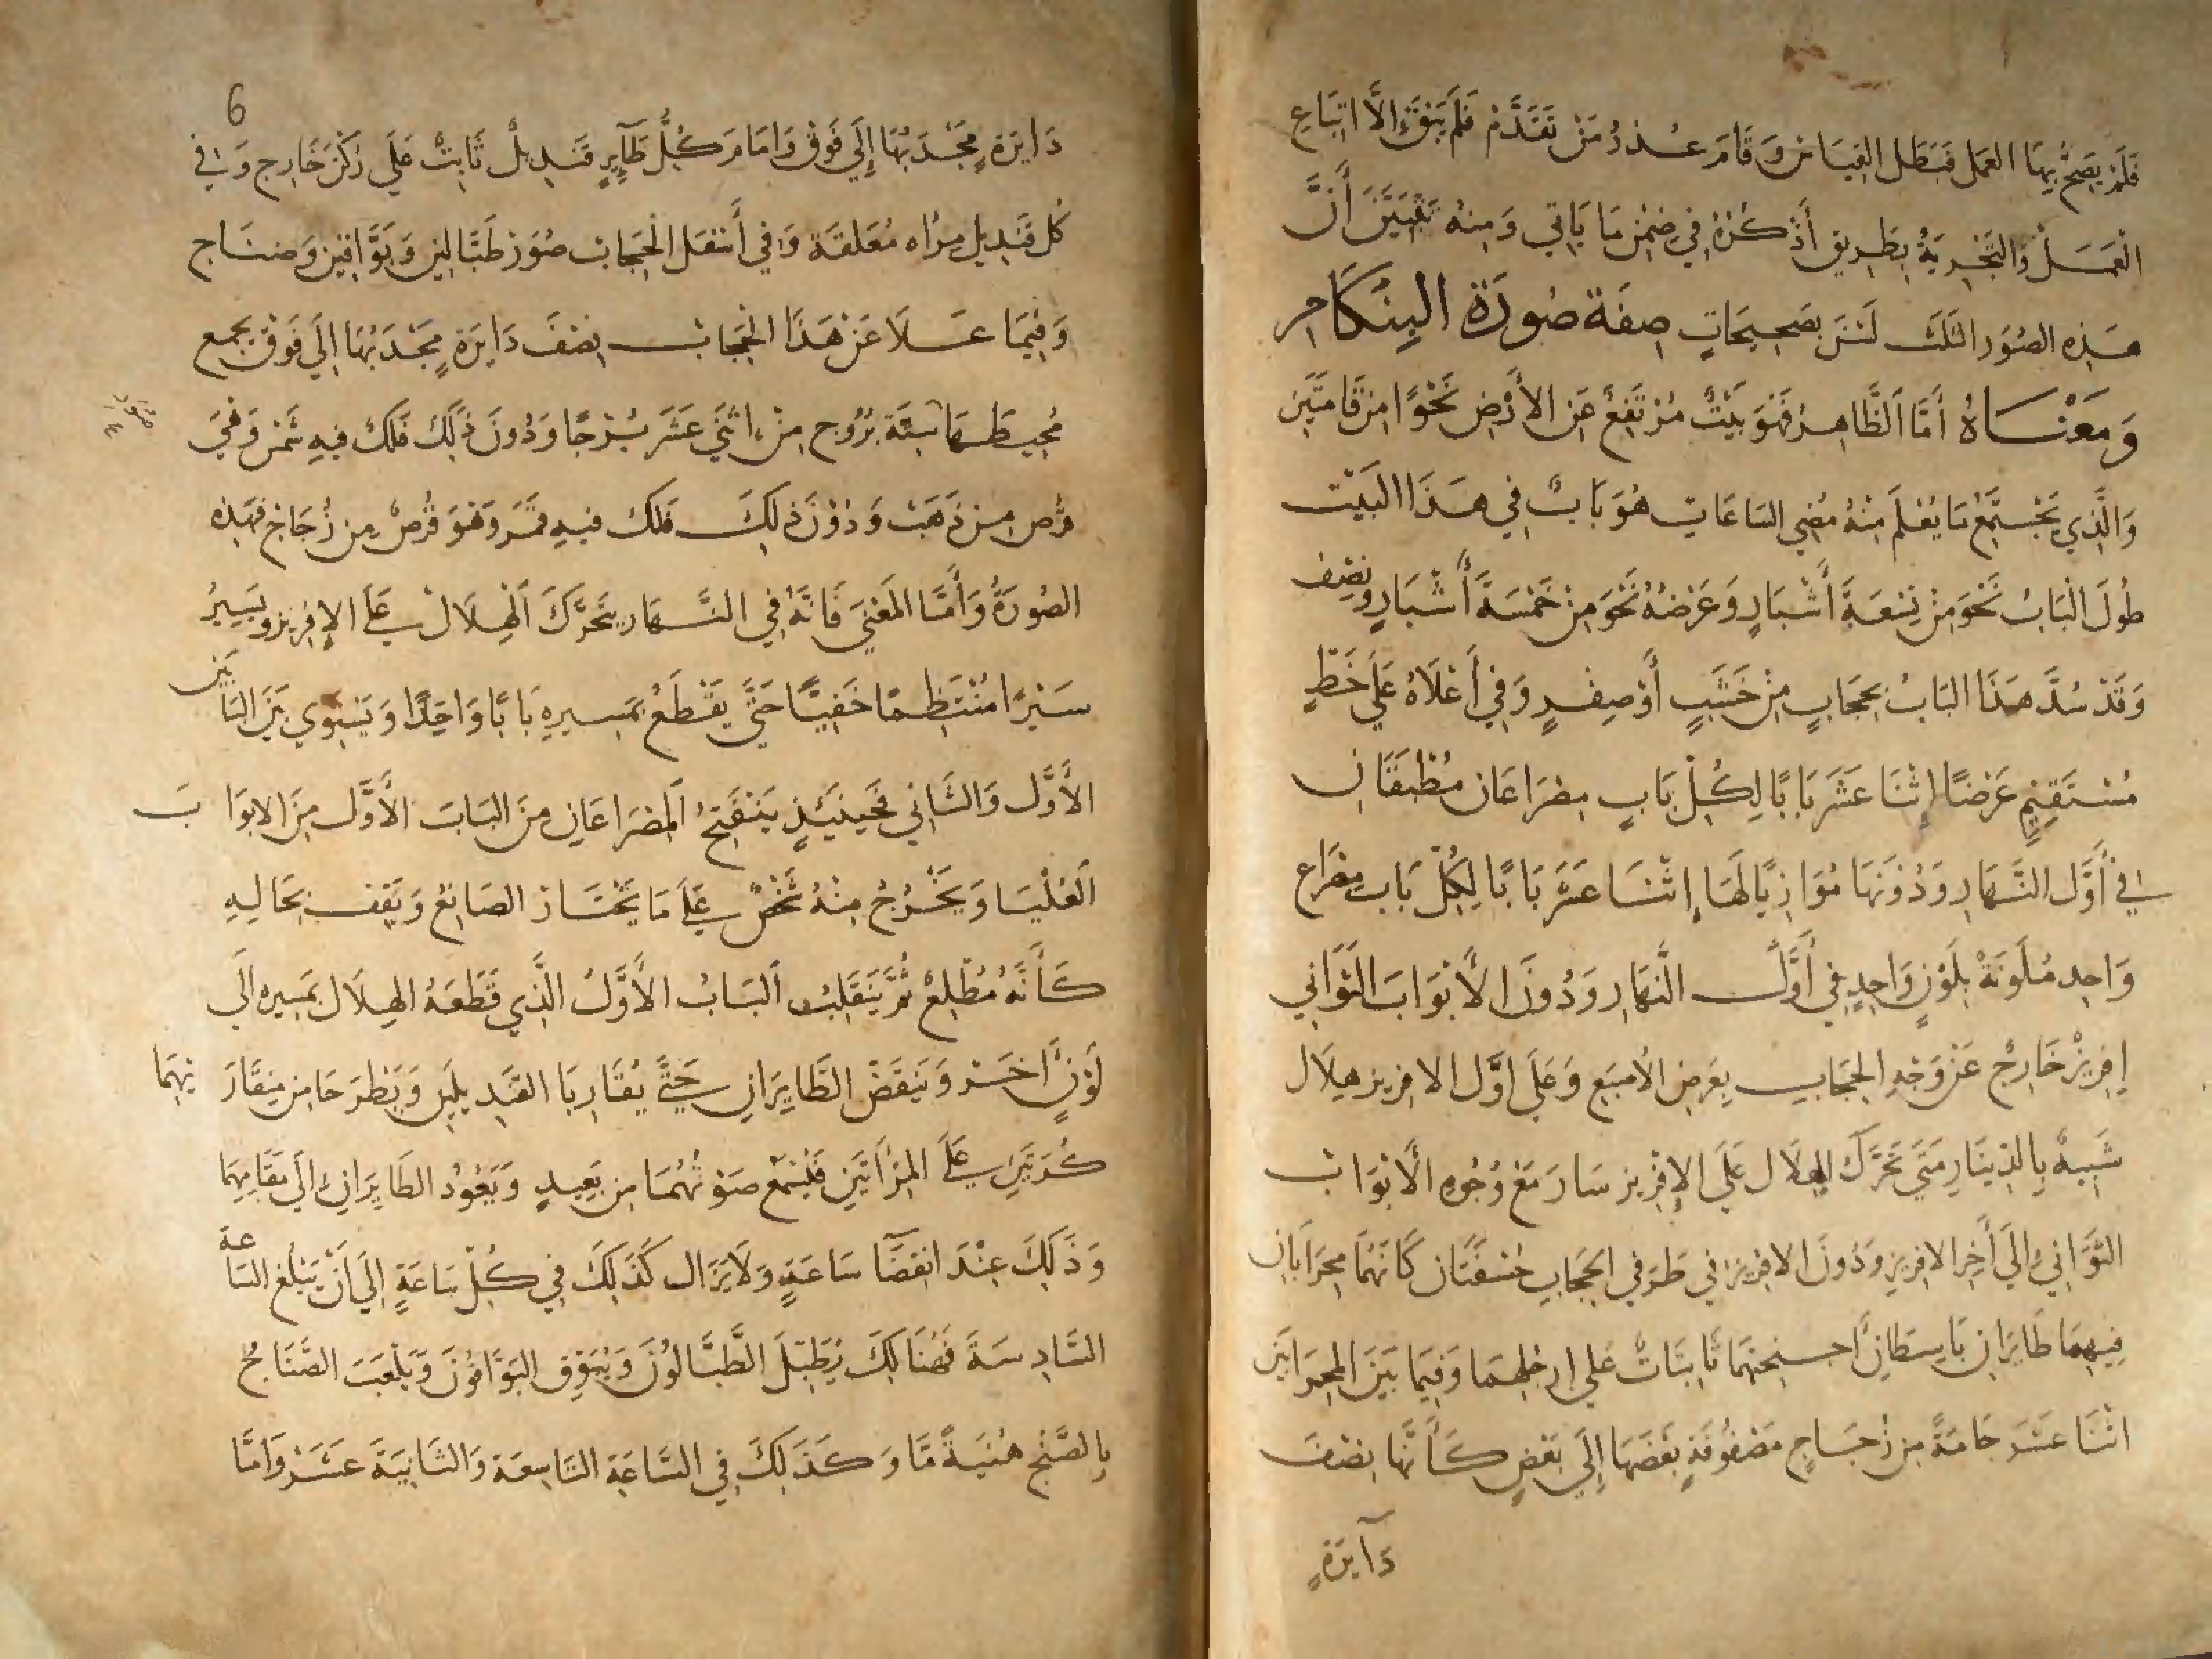 فَلَمْ يَصِحَّ بِهَا العَمَل فَبَطَل القِيَاسُ وَقَامَ عُذْرُ مَنْ تَقَدَّمَ فَلَمْ يَبْقَ إلاَّ اتِبَاع
العَمَلْ وَالتَجْرِبَةُ بِطَرِيقٍ أَذْكُرُهُ فِي ضِمْنِ مَا يَاتِي وَمِنهُ يَتَبَيَّنَ أَنَّ
هَذِهِ الصُوَر الثَلَث لَسْنَ بِصَحِيحَاتٍ صِفَة صُورَة البِنكَام
وَمَعْنَاهُ أَمَّا الظَّاهِرُ فَهُوَ بَيْتٌ مُرْتَفِعٌ عَنِ الأَرْضِ نَحْوًا مِن قَامَتَيْنِ
وَالَّذِي يَجْتَمِعُ مَا يُعْلَمَ مِنْهُ مُضِي السَاعَاتِ هُوَ بَابٌ فِي هَذَا البَيْت
طُولَ البَابُ نَحْوَ مِنْ تِسْعَةِ أَشْبَارٍ وَعَرْضُهُ نَحْوَ مِنْ خَمْسَةَ أَشْبَارٍ وَنِصْف
وَقَدْ سُدَّ هَذَا البَابُ بِحِجَابٍ مِنْ خَشَبٍ أَوْ صِفْرٍ وَفِي أَعْلَاهُ عَلَى خَطٍّ
مُسْتَقِيمٍ عَرْضًا إثْنَا عَشَرَ بَابًا لِكُلّ بَابٍ مِصْرَاعَان مُطْبَقَانِ
فِي أَوَّل النَّهَارِ وَدُونَهَا مُوَازِيًا لَهَا إثْنَا عَشَرَ بَابًا لِكُلّ بَاب مِصْرَاع
وَاحِد مُلَوَنَةْ بِلَوْنٍ وَاحِدٍ فِي أَوَّل النَّهَارِ وَدُونَ الأَبْوَابَ الثَوَانِي
إفِرِيزْ خَارِجٌ عَنْ وَجْهِ الحِجَابِ بِعَرضِ الأُصْبَعِ وَعَلَى اوَّل الافرِيز هِلَال
شَبِيهٌ بِالدِينَارِ مَتَى تَحَرَّكَ الهِلَال عَلَى الإفْرِيز سَارَ مَعَ وُجُوهِ الأَبْوَابْ
الثَّوَانِي إلَى أَخِر الافرِيزِ وَدُونَ الافرِيز فِي طَرَفي الحِجَابِ خِسْفَتَان كَانَهُمَا مِحْرَابَانِ
فِيهِمَا طَايِرَانِ بَاسِطَانِ أجنِحَتهُمَا ثَابِتَاتٌ عَلي ارجُلهِمَا وَفِيمَا بَيْنَ المِحرَابَين
اثْنَا عَشَرَ جَامَةً مِن زُجَاجٍ مَصْفُوفَةٍ بَعْضَهَا إلَى بَعْضٍ كَأَنَّهَا نِصْفَ
دَآيرَةٍ
6
دَايرَةٍ مِحْدَبُهَا إِلَي فَوْق وَامَامَ كُلّ طَآيرٍ قَنْدِيلٌ ثَابِتٌ عَلَي رُكْنٍ خَارِج وَفي
كُل قَنْدِيل مِرْاه مُعَلقَة وَفي أَسْفَل الحِجَاب صُوَر طَبَّالِين وَبَوَّاقِين وَصَنَاج
وَفِيمَا عَلَا عَنْ هَذَا الحِجَاب نِصْفَ دَايرَةٍ مِحْدَبُهَا الَي فَوْق بِجَمع
مُحِيطهَا سِتَّة بُرُوج مِنْ اثْنَي عَشَرَ بُرْجًا وَدُونَ ذَلِكَ فَلَكٌ فِيهِ شَمْسٌ وَهْيَ
قُرْص مِن ذَهَبٍ وَدُوْنَ ذَلِكَ فَلَك فيهِ قَمَر وَهُوَ قُرْصٌ مِن زُجَاج فهَذِهِ
الصُورَةُ وَأَمَّا المَعْنَي فَانَهُ فِي النَّهَار يَتَحَرَّكَ الهِلَال عَلَي الإفِرِيز وَيَسِيرُ
سَيْرًا مُنْتَظِمًا خَفِيًّا حَتَّى يَقْطَعُ بمَسيرِهِ بَابًا وَاحِدًا وَيَسْتَوِي بَيْنَ البَابَيْن
الأَوَّل وَالثَّانِي فَحِينَئِذٍ يَنْفَتِحُ المِصْرَاعَانِ مِنَ البَابَ الأَوَّل مِنَ الابوَابَ
العُلْيَا وَيَخْرُجُ مِنْهُ شَخْصٌ عَلَي مَا يَخْتَارْ الصَانِعُ وَيَقِف بحَالِهِ
كَأَنَّهُ مُطْلِعٌ ثُمَّ يَنْقَلِبُ البَابُ الأَوَّلُ الَّذِي قَطَعَهُ الهِلَال بمَسِيرِه الَي
لَوْنٍ أخَر وَيَنقَضْ الطَّايِرَانِ حَتَّى يُقَارِبَا القَنْدِيلَيْن وَيَطْرَحَا مِن مِنقَارَيهِمَا
كُرَتَيْنِ عَلَي المِرْاَتَيْنِ فَيُسْمَع صَوْتُهُمَا مِن بَعِيدٍ وَيَعُودُ الطَايرَانِ الَي مَقَامِهِمَا
وَذَلِكَ عِنْدَ انقضَآ سَاعَةٍ وَلَا يَزَال كَذَلِكَ فِي كُلّ سَاعَةٍ الَي أَنْ يَبْلُغ السَاعَة
السَّادِسَة فَهُنَالِكَ يُطَبّلَ الطَّبَّالُونَ وَيُبَوّق البَوَّاقُونَ وَيَلْعَبَ الصَّنَاج
بِالصَّنْج هُنَيَةً مَّا وَكَذَلِكَ فِي السَّاعَة التَاسِعَة وَالثَانِيَة عَشَرْ وَامَّا